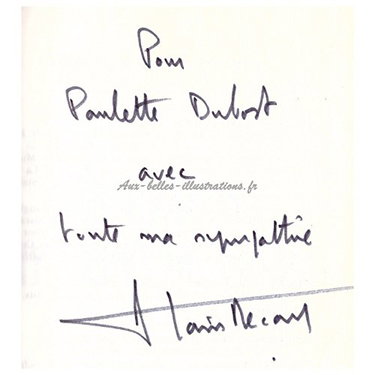 Pour
Paulette Dubost
avec
Aux-belles-illustrations.fr
toute ma sympathie
Alain Decaux